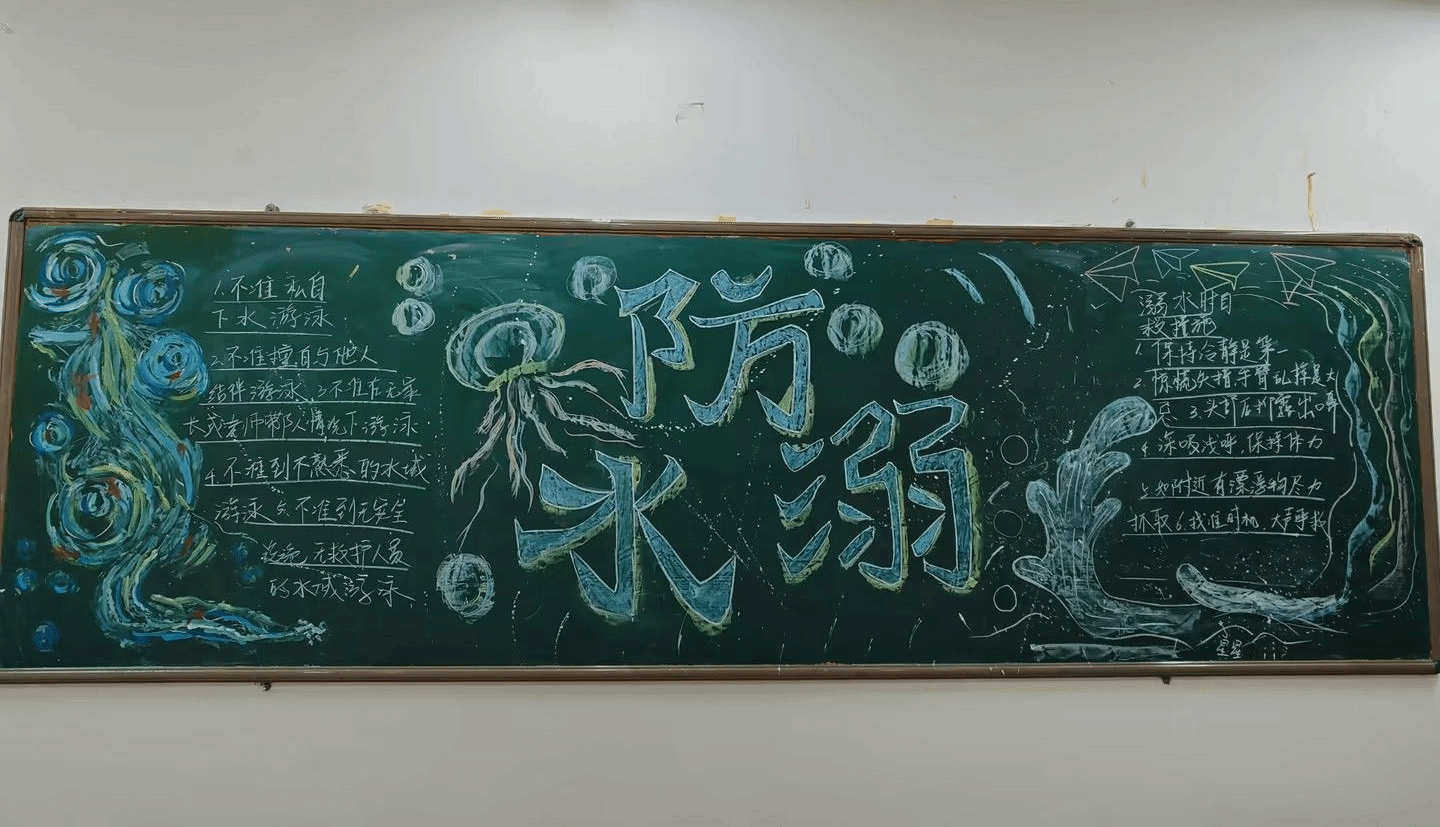 1.不准私自
下水游泳
2.不准擅自与他人
结伴游泳 3不准在无家
长或老师带队情况下游泳.
4.不准到不熟悉的水域
游泳 5不准到无安全
设施,无救护人员
的水域游泳.
防
水溺
溺水时自
救措施
1.保持冷静是第一
2.慌张失措,手臂乱挥是大
忌 3.头部后仰露出口鼻
4.深吸浅呼,保持体力
5如附近有漂浮物尽力
抓取 6.找准时机,大声呼救
星星